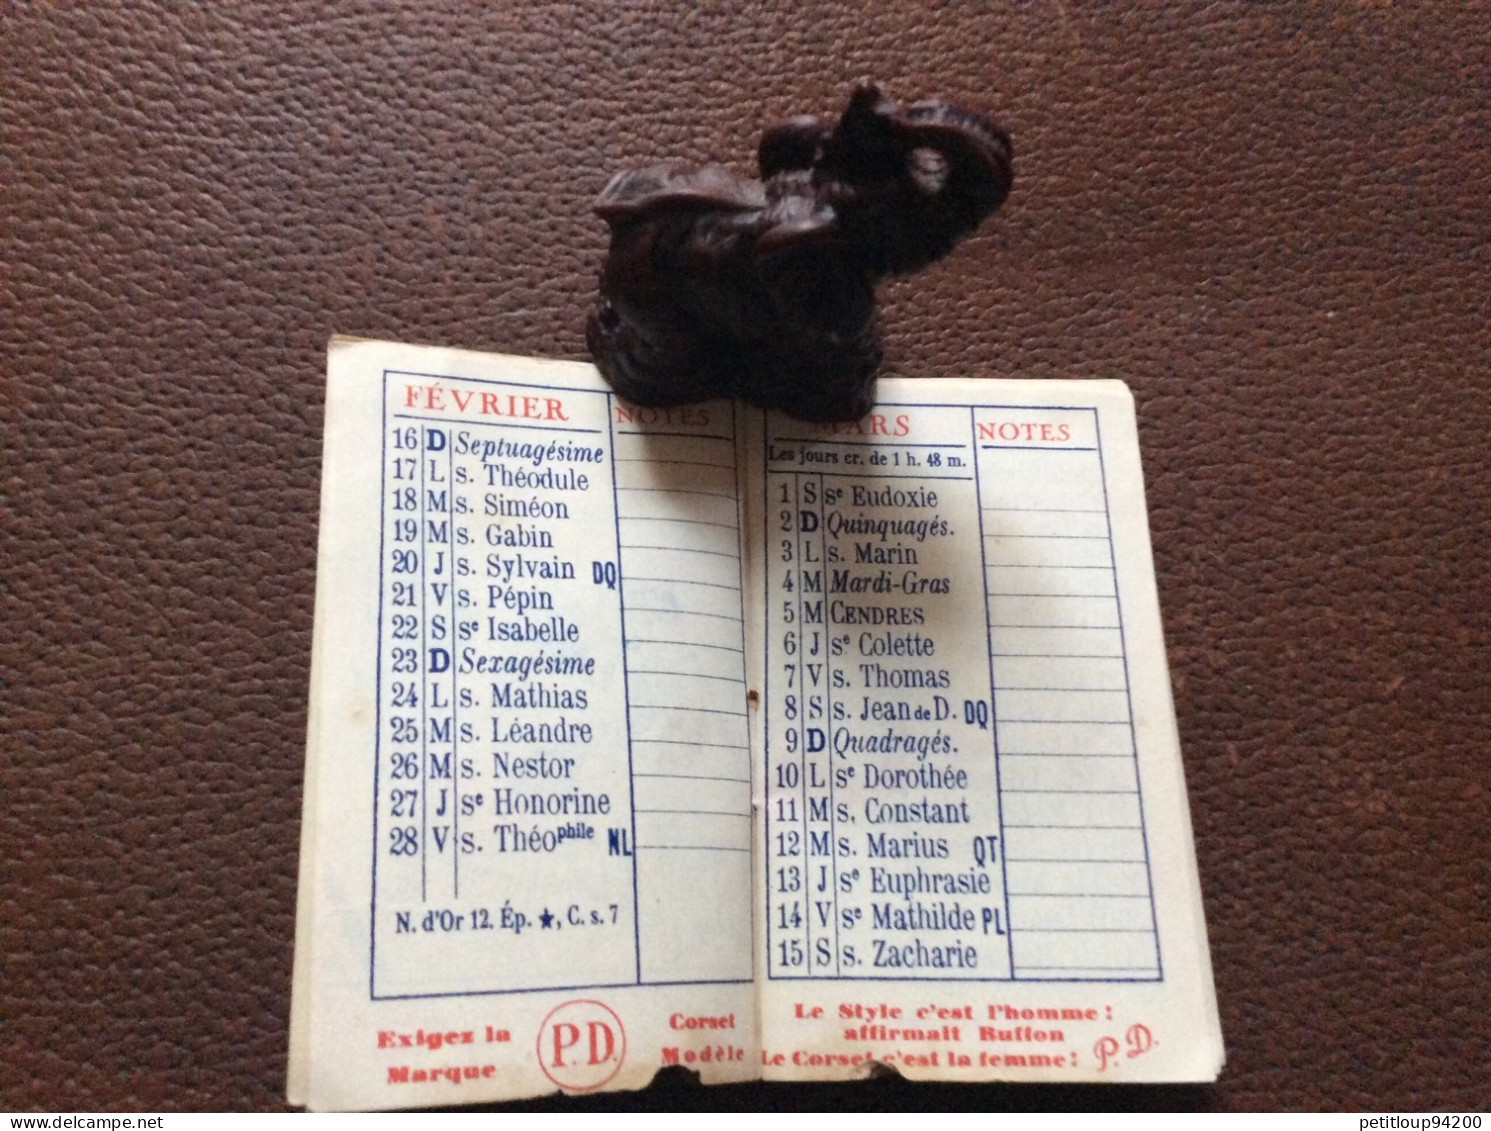 FÉVRIER NOTES
16 D Septuagésime
17 L s. Théodule
18 M s. Siméon
19 M s. Gabin
20 J s. Sylvain DQ
21 V s. Pépin
22 S se Isabelle
23 D Sexagésime
24 L s. Mathias
25 M s. Léandre
26 M s. Nestor
27 J se Honorine
28 V s. Théophile NL
N. d'Or 12. Ép. ★, C. s. 7
Exigez la
Marque
P.D.
Corset
Modèle
MARS NOTES
Les jours cr. de 1 h. 48 m.
1 S se Eudoxie
2 D Quinquagés.
3 L s. Marin
4 M Mardi-Gras
5 M CENDRES
6 J se Colette
7 V s. Thomas
8 S s. Jean de D. DQ
9 D Quadragés.
10 L se Dorothée
11 M s. Constant
12 M s. Marius QT
13 J se Euphrasie
14 V se Mathilde PL
15 S s. Zacharie
Le Style c'est l'homme :
affirmait Buffon
Le Corset c'est la femme : P.D.
petitloup94200